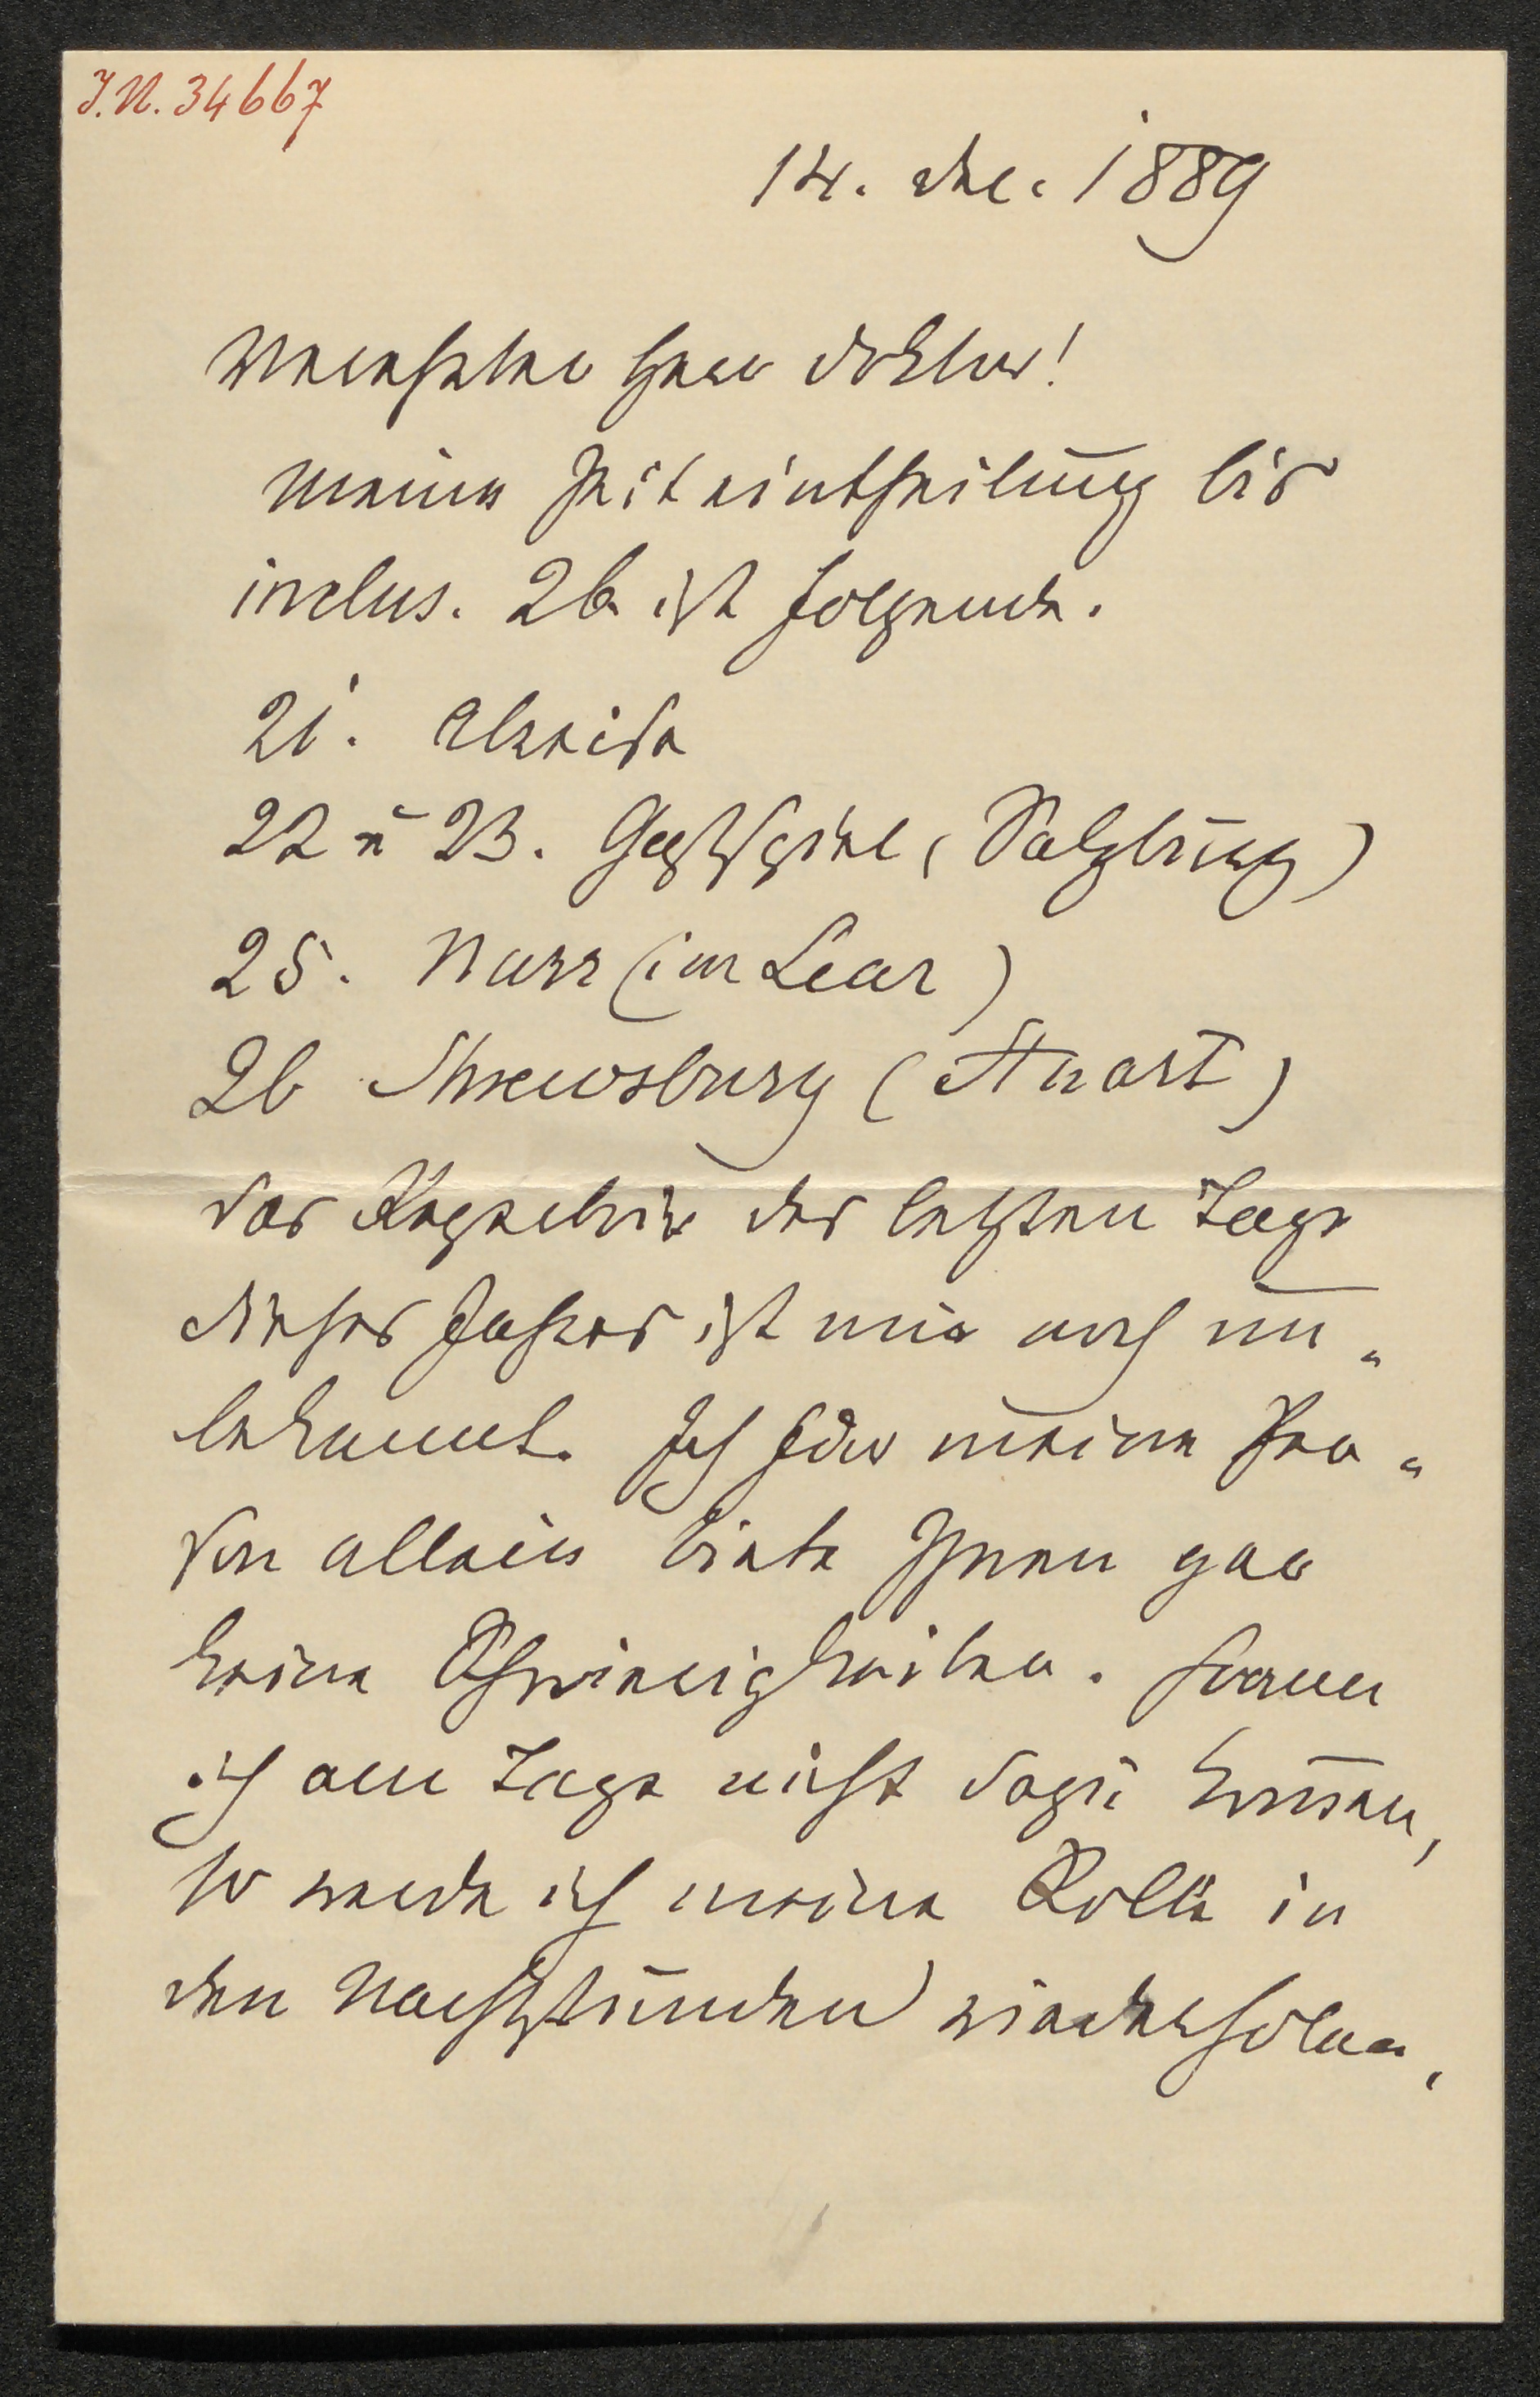 J.N. 34667
14. Dec. 1889
Verehrter Herr Doktor!
Meine Zeiteintheilung bis
inclus. 26. ist folgende.
21. Abreise
22 u 23. Gastspiel (Salzburg)
25. Narr (im Lear)
26 Shrewsbury (Stuart)
das Repertoir der letzten Tage
dieses Jahres ist mir noch un-
bekannt. Ich für meine Per-
son allein biete Ihnen gar
keine Schwierigkeiten. Sollte
ich am Tage nicht dazu kommen,
so werde ich meine Rolle in
den Nachtstunden wiederholen,